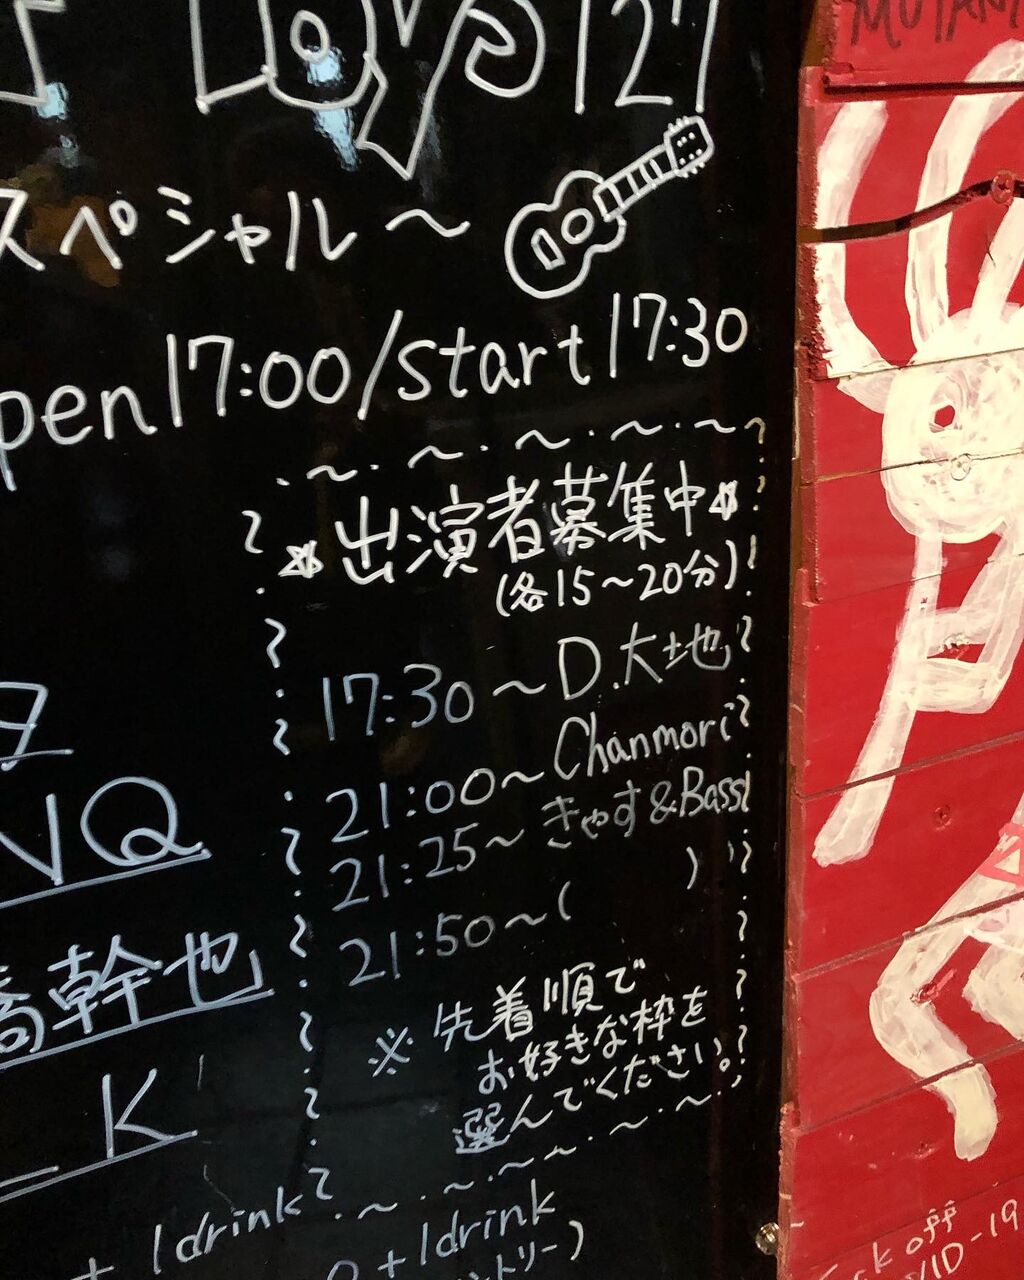 MUTANT
スペシャル～
open17:00/start17:30
出演者募集中
(各15～20分)
17:30～D.大地
21:00～Chanmori
21:25～きゃす&Bass
21:50～(　　)
※先着順で
お好きな枠を
選んでください。
VQ
橋幹也
K
+1drink
+1drink
ントリー)
off
VID-19